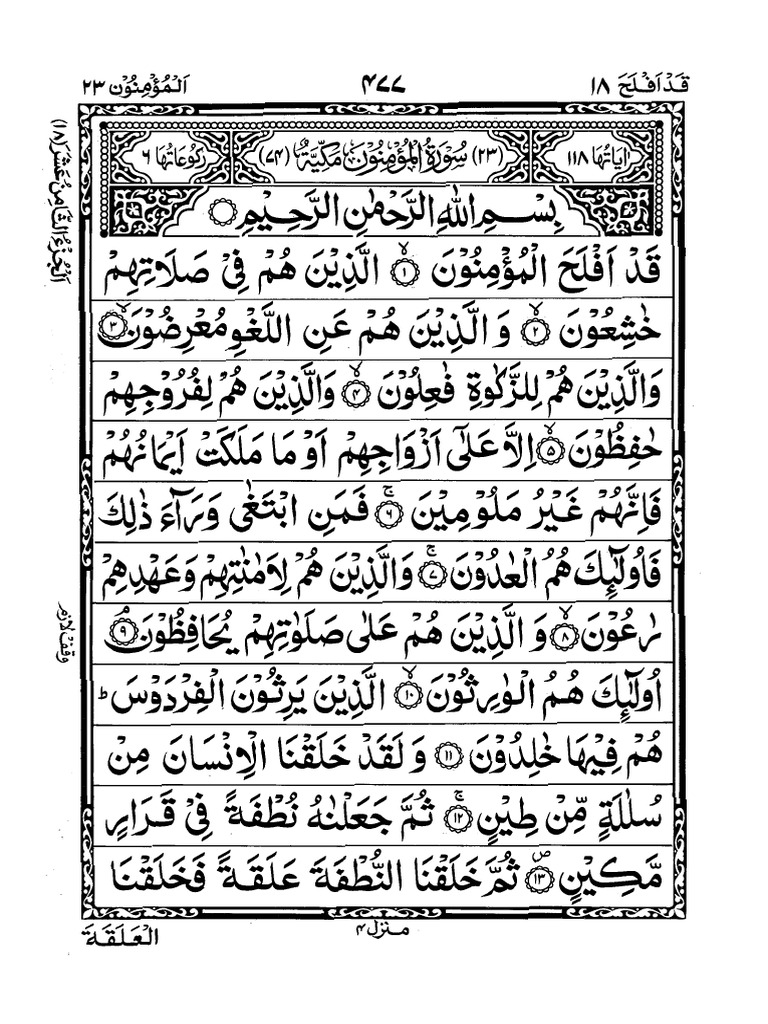 قَدْ اَفْلَحَ ١٨ ٤٧٧ اَلْمُؤْمِنُوْن ٢٣
اٰيَاتُهَا ١١٨ (٢٣) سُوْرَةُ الْمُؤْمِنُوْنَ مَكِّيَّةٌ (٧٤) رُكُوْعَاتُهَا ٦
بِسْمِ اللهِ الرَّحْمٰنِ الرَّحِيْمِ
قَدْ اَفْلَحَ الْمُؤْمِنُوْنَ ۙ١ الَّذِيْنَ هُمْ فِيْ صَلَاتِهِمْ
خٰشِعُوْنَ ۙ٢ وَالَّذِيْنَ هُمْ عَنِ اللَّغْوِ مُعْرِضُوْنَ ۙ٣
وَالَّذِيْنَ هُمْ لِلزَّكٰوةِ فٰعِلُوْنَ ۙ٤ وَالَّذِيْنَ هُمْ لِفُرُوْجِهِمْ
حٰفِظُوْنَ ۙ٥ اِلَّا عَلٰٓى اَزْوَاجِهِمْ اَوْ مَا مَلَكَتْ اَيْمَانُهُمْ
فَاِنَّهُمْ غَيْرُ مَلُوْمِيْنَ ۚ٦ فَمَنِ ابْتَغٰى وَرَآءَ ذٰلِكَ
فَاُولٰٓئِكَ هُمُ الْعٰدُوْنَ ۚ٧ وَالَّذِيْنَ هُمْ لِاَمٰنٰتِهِمْ وَعَهْدِهِمْ
رٰعُوْنَ ۙ٨ وَالَّذِيْنَ هُمْ عَلٰى صَلَوٰتِهِمْ يُحَافِظُوْنَ ۘ٩
اُولٰٓئِكَ هُمُ الْوٰرِثُوْنَ ۙ١٠ الَّذِيْنَ يَرِثُوْنَ الْفِرْدَوْسَ ؕ
هُمْ فِيْهَا خٰلِدُوْنَ ١١ وَلَقَدْ خَلَقْنَا الْاِنْسَانَ مِنْ
سُلٰلَةٍ مِّنْ طِيْنٍ ۚ١٢ ثُمَّ جَعَلْنٰهُ نُطْفَةً فِيْ قَرَارٍ
مَّكِيْنٍ ۖ١٣ ثُمَّ خَلَقْنَا النُّطْفَةَ عَلَقَةً فَخَلَقْنَا
اَلْجُزْءُ الثَّامِنُ عَشَرَ (١٨)
وقف لازم
منزل ٤
الْعَلَقَةَ